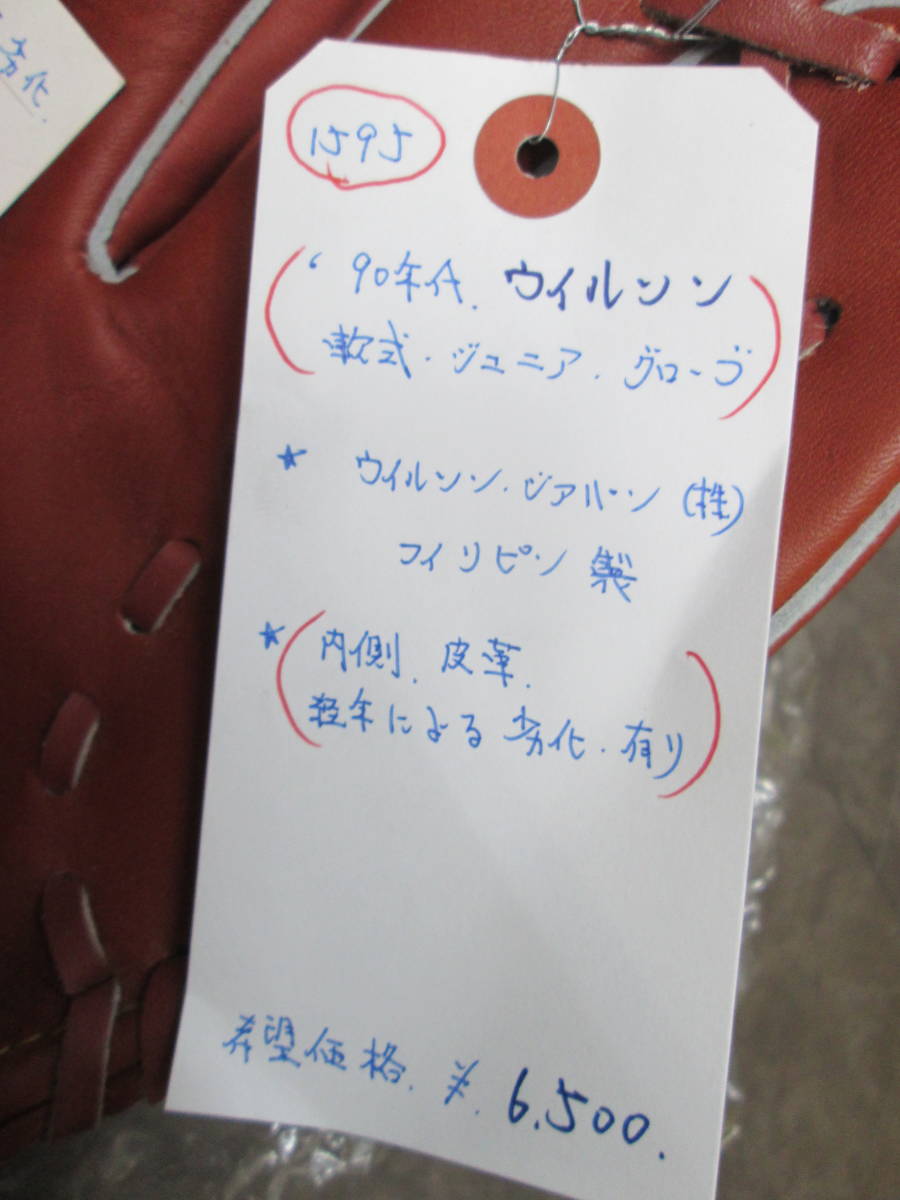 劣化.
1595
'90年代. ウイルソン
軟式.ジュニア.グローブ
★ ウイルソン.ジアルーン (株)
フィリピン製
★ 内側.皮革.
経年による劣化.有り
希望価格.¥.6,500.